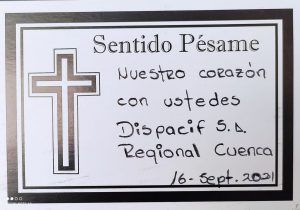 Sentido Pésame
Nuestro corazón
con ustedes
Dispacif S.A.
Regional Cuenca
16-Sept. 2021